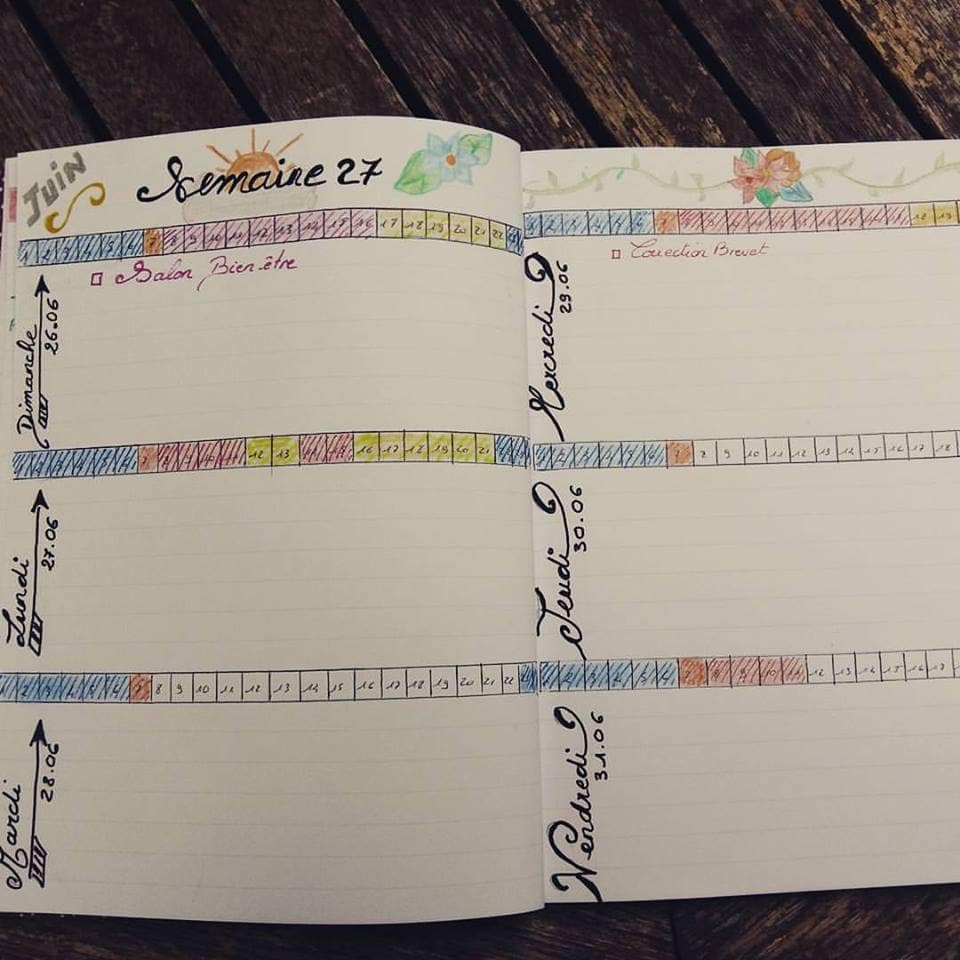 Juin
Semaine 27
1 2 3 4 5 6 7 8 9 10 11 12 13 14 15 16 17 18 19 20 21 22 23
Dimanche
26.06
Salon Bien-être
1 2 3 4 5 6 7 8 9 10 11 12 13 14 15 16 17 18 19 20 21
Lundi
27.06
1 2 3 4 5 6 7 8 9 10 11 12 13 14 15 16 17 18 19 20 21 22
Mardi
28.06
1 2 3 4 5 6 7 8 9 10 11 12 13 14 15 16 17 18 19
Mercredi
29.06
Correction Brevet
1 2 3 4 5 6 7 8 9 10 11 12 13 14 15 16 17 18
Jeudi
30.06
1 2 3 4 5 6 7 8 9 10 11 12 13 14 15 16 17
Vendredi
31.06